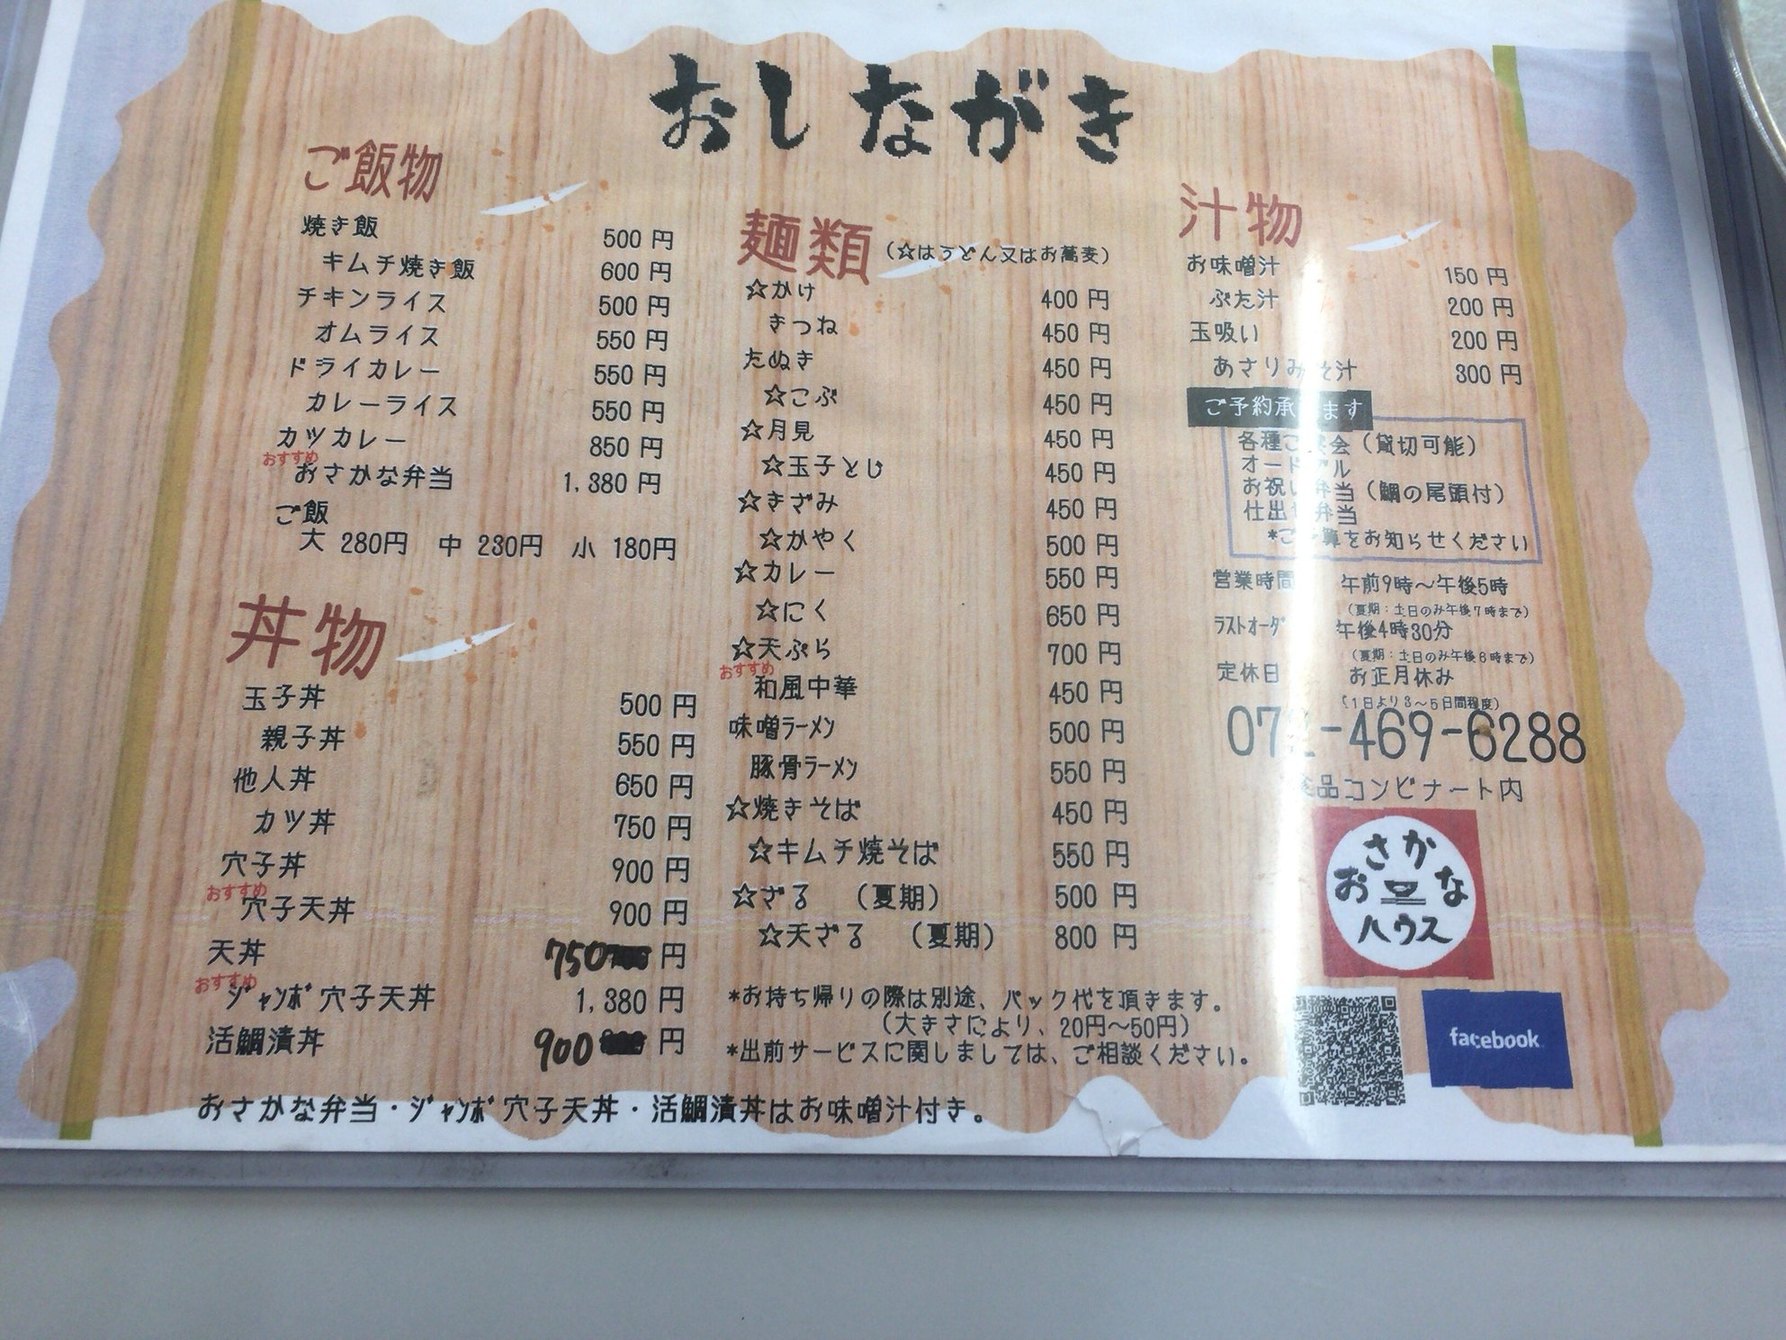 おしながき
ご飯物
焼き飯 500 円
キムチ焼き飯 600 円
チキンライス 500 円
オムライス 550 円
ドライカレー 550 円
カレーライス 550 円
カツカレー 850 円
おすすめ
おさかな弁当 1,380 円
ご飯
大 280円 中 230円 小 180円
丼物
玉子丼 500 円
親子丼 550 円
他人丼 650 円
カツ丼 750 円
穴子丼 900 円
おすすめ
穴子天丼 900 円
天丼 750 円
おすすめ
ジャンボ穴子天丼 1,380 円
活鯛漬丼 900 円
おさかな弁当・ジャンボ穴子天丼・活鯛漬丼はお味噌汁付き。
麺類 (☆はうどん又はお蕎麦)
☆かけ 400 円
きつね 450 円
たぬき 450 円
☆こぶ 450 円
☆月見 450 円
☆玉子とじ 450 円
☆きざみ 450 円
☆かやく 500 円
☆カレー 550 円
☆にく 650 円
☆天ぷら 700 円
おすすめ
和風中華 450 円
味噌ラーメン 500 円
豚骨ラーメン 550 円
☆焼きそば 450 円
☆キムチ焼そば 550 円
☆ざる (夏期) 500 円
☆天ざる (夏期) 800 円
*お持ち帰りの際は別途、パック代を頂きます。
(大きさにより、20円〜50円)
*出前サービスに関しましては、ご相談ください。
汁物
お味噌汁 150 円
ぶた汁 200 円
玉吸い 200 円
あさりみそ汁 300 円
ご予約承ります
各種ご宴会(貸切可能)
オードブル
お祝い弁当(鯛の尾頭付)
仕出し弁当
*ご予算をお知らせください
営業時間 午前9時〜午後5時
(夏期:土日のみ午後7時まで)
ラストオーダー 午後4時30分
(夏期:土日のみ午後6時まで)
定休日 お正月休み
(1日より3〜5日間程度)
072-469-6288
食品コンビナート内
おさかな
ハウス
facebook